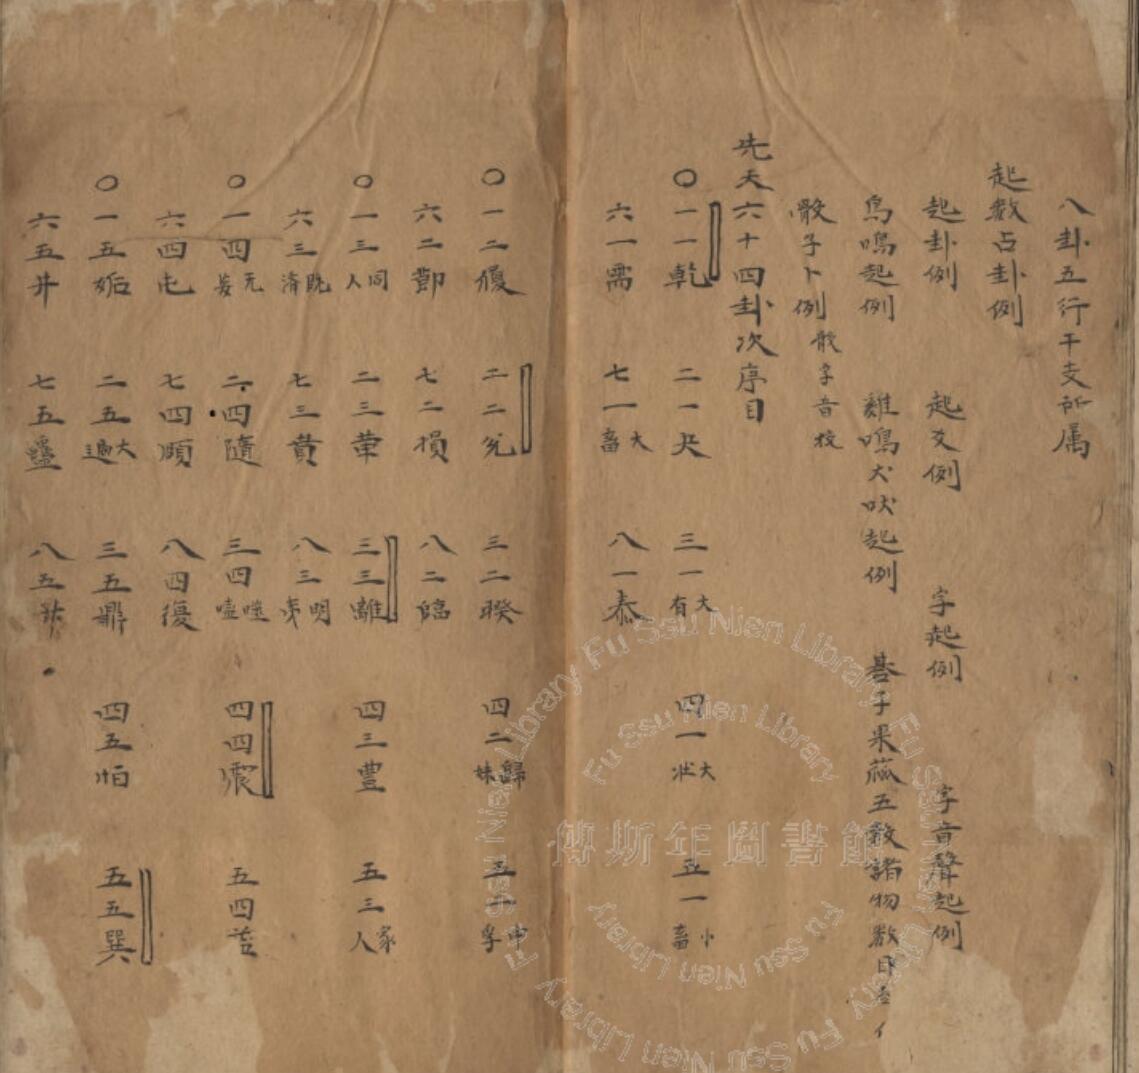 八卦五行干支所属
起數占卦例
起卦例 起爻例 字起例 字音聲起例
鳥鳴起例 雞鳴犬吠起例 碁子果蓏五數諸物數
骰子卜例 骰字音投
先天六十四卦次序目
〇一一乾 二一夬 三一大有 四一大壯 五一小畜
六一需 七一大畜 八一泰
〇一二履 二二兌 三二睽 四二歸妹 五二中孚
六二節 七二損 八二臨
〇一三同人 二三革 三三離 四三豐 五三家人
六三既濟 七三賁 八三明夷
〇一四无妄 二四隨 三四噬嗑 四四震 五四益
六四屯 七四頤 八四復
〇一五姤 二五大過 三五鼎 四五恒 五五巽
六五井 七五蠱 八五升
傅斯年圖書館
Fu Ssu Nien Library Fu Ssu Nien Library Fu Ssu Nien Library Fu Ssu Nien Library